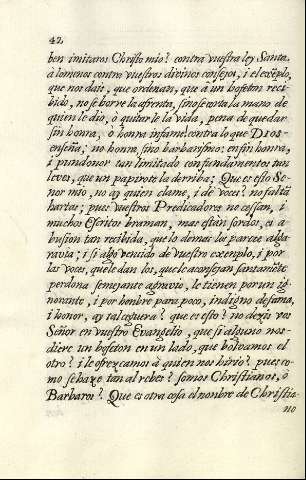 42
ben imitaros Christo mio? contra vuestra ley Santa.
à lomenos contra vuestros divinos consejos, i el exẽplo,
que nos dais, que ordenan, que à un bofeton reci-
bido, no se borre la afrenta, sino se corta la mano de
quien le dio, o quitarle la vida, pena de quedar
sin honra, ò honra infame, contra lo que DIOS
enseña; no honra, sino barbarismo: en fin honra,
i pundonor tan limitado con fundamentos tan
leves, que un papirote la derriba? Que es eso Se-
ñor mio, no ay quien clame, i de voces? no falta
hartas; pues vuestros Predicadores no cessan, i
muchos Escritos braman, mas están sordos, es a
busion tan recibida, que lo demas les parece alga-
ravia; i si algo venido de vuestro exemplo, i por
las voces, que le dan los, que le aconsejan santamẽte
perdona semejante agravio, le tienen por un ig-
norante, i por honbre para poco, indigno de fama,
i honor, ay tal ceguera? que es esto? no dezis vos
Señor en vuestro Evangelio, que si alguno nos
diere un bofeton en un lado, que bolvamos el
otro? i le ofrezcamos à quien nos hirio? pues co-
mo se haze tan al rebes? somos Christianos, ò
Barbaros? Que es otra cosa el nonbre de Christia-
no